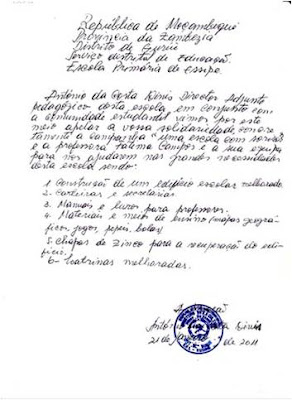 República de Moçambique
Província da Zambezia
Distrito de Gurué
Serviço distrital de Educação
Escola Primária de
António da Costa Dinis Director Adjunto
pedagógico desta escola em conjunto com
a comunidade estudantil vimos por este
meio apelar a vossa solidariedade, concre
tamente a campanha "uma escola com sorrisos
e a professora Fatima Campos e a sua equipa
para nos ajudarem nas grandes necessidades
desta escola sendo:
1. Construção de um edifício escolar melhorado.
2- Carteiras e secretarias
3. Manuais e livros para professores.
4. Materiais e meios de ensino (mapas geográ
ficos, jogos, papeis, bolas)
5. Chapas de Zinco para a recuperação do edi-
fício.
6- Latrinas melhoradas.
António Dinis
21 de de 2011